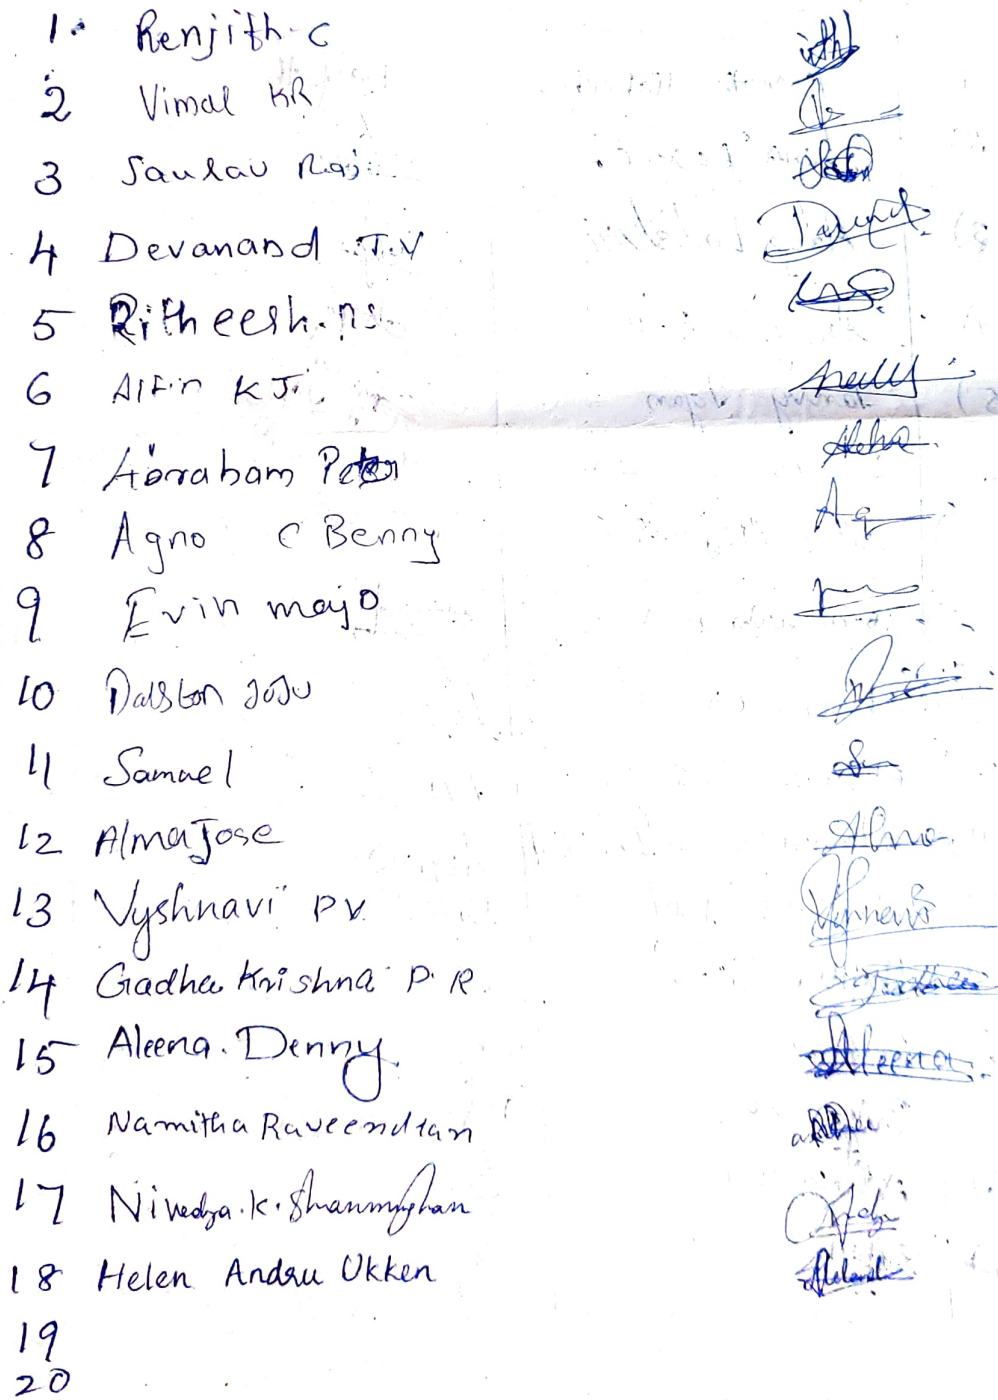 1. Renjith. C
2 Vimal KR
3 Saurav Raj
4 Devanand .T.V
5 Ritheesh. ns.
6 Alfin K J.
7 Abraham Peter
8 Agno C Benny Aq
9 Evin majo
10 Dalston JoJu
11 Samuel
12 Alma Jose Alma
13 Vyshnavi P V
14 Gadha Krishna P. R.
15 Aleena. Denny Aleena
16 Namitha Raveendran
17 Nivedya. K. Shanmughan
18 Helen Andru Ukken
19
20